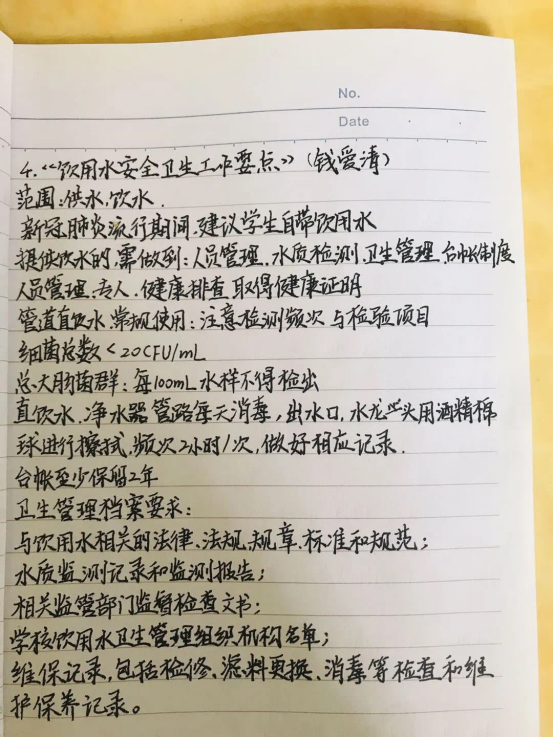 No.
Date
4.《饮用水安全卫生工作要点》(钱爱清)
范围:供水,饮水.
新冠肺炎流行期间,建议学生自带饮用水
提供饮水的,需做到:人员管理.水质检测.卫生管理.台帐制度
人员管理,专人.健康排查 取得健康证明
管道直饮水.常规使用:注意检测频次与检验项目
细菌总数<20CFU/mL
总大肠菌群:每100mL水样不得检出
直饮水.净水器管路每天消毒,出水口,水龙头用酒精棉
球进行擦拭,频次2小时/次,做好相应记录.
台帐至少保留2年
卫生管理档案要求:
与饮用水相关的法律、法规、规章、标准和规范;
水质监测记录和监测报告;
相关监管部门监督检查文书;
学校饮用水卫生管理组织机构名单;
维保记录,包括检修、滤料更换、消毒等检查和维
护保养记录。